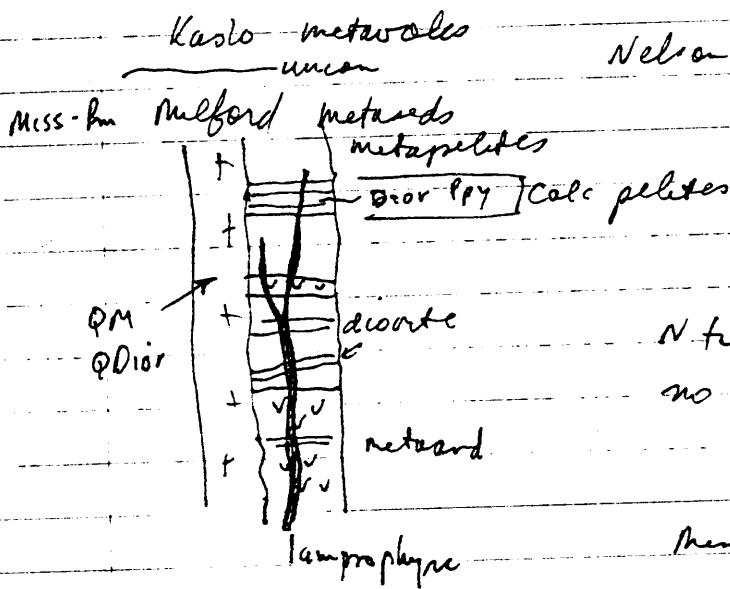 Kaslo metavolcs
uncon
Nelson
Miss-Pm Milford metaseds
metapelites
Dior Ppy Calc pelites
QM
QDior
diorite
N
no
metaand
lamprophyre